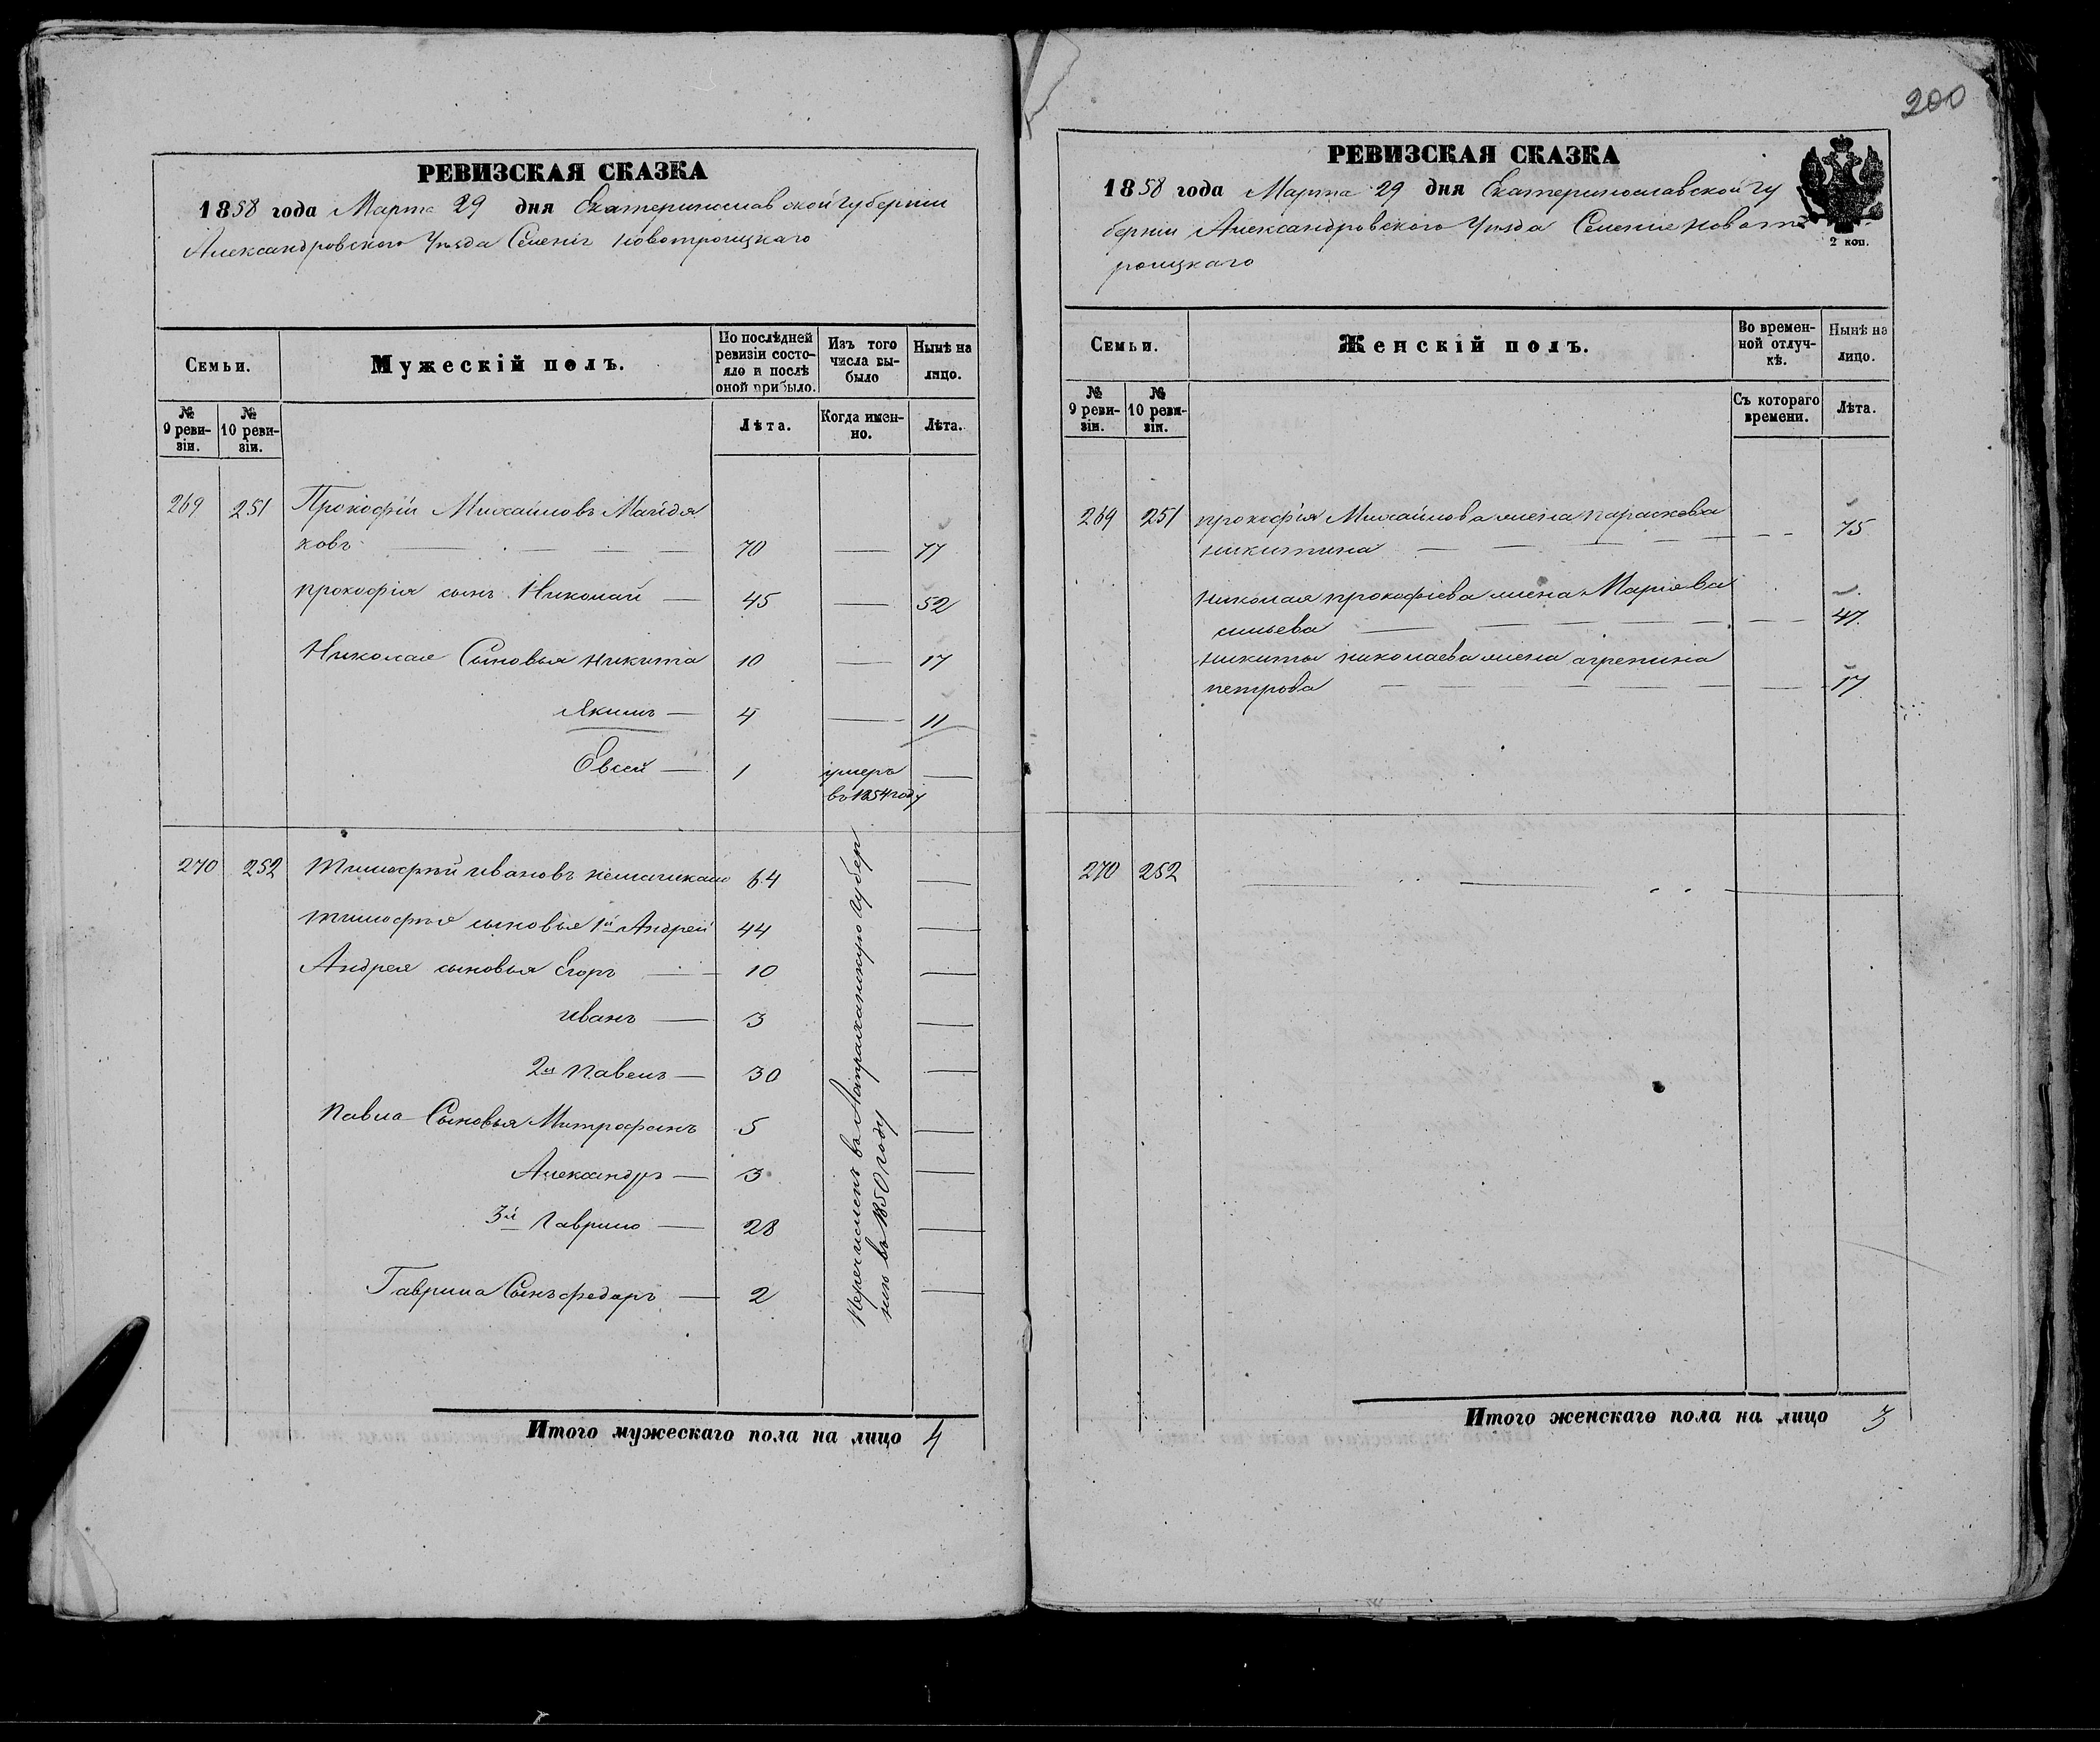 РЕВИЗСКАЯ СКАЗКА
1858 года Марта 29 дня Екатеринославской Губернии
Александровского Уѣзда Селенія Новотроицкаго
Семьи.
Мужескій полъ.
По послѣдней ревизіи состояло и послѣ оной прибыло.
Изъ того числа выбыло
Нынѣ на лицо.
№ 9 ревизіи.
№ 10 ревизіи.
Лѣта.
Когда именно.
Лѣта.
269 251 Прокофій Михайловъ Майдя
ковъ — 70 — 77
прокофія сынъ Николай — 45 — 52
Николая Сыновья никита 10 — 17
Якимъ — 4 — 11
Евсей — 1 умеръ —
въ 1854 году
270 252 Тимофѣй ивановъ 64 —
тимофѣя сыновья 1й Андрей 44 —
Андрея сыновья Егоръ — 10 —
иванъ — 3 —
2й павелъ — 30 —
павла Сыновья Митрофанъ 5 —
Александръ — 3 —
3й Гаврило — 28 —
Гаврила Сынъ федоръ — 2 —
перечисленъ въ Астраханскую Губер
нію въ 1850 году
Итого мужескаго пола на лицо 4
200
РЕВИЗСКАЯ СКАЗКА
1858 года Марта 29 дня Екатеринославской Гу
берніи Александровского Уѣзда Селенія Новот
роицкаго
2 коп.
Семьи.
Женскій полъ.
Во временной отлучкѣ.
Нынѣ на лицо.
№ 9 ревизіи.
№ 10 ревизіи.
Съ котораго времени.
Лѣта.
269 251 прокофія Михайлова жена параскова
никитина — 75
николая прокофіева жена Марія ва
сильева — 47
никиты николаева жена агрепина
петрова — 17
270 252 —
Итого женскаго пола на лицо 3